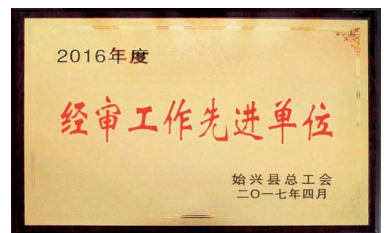 2016年度
经审工作先进单位
始兴县总工会
二〇一七年四月